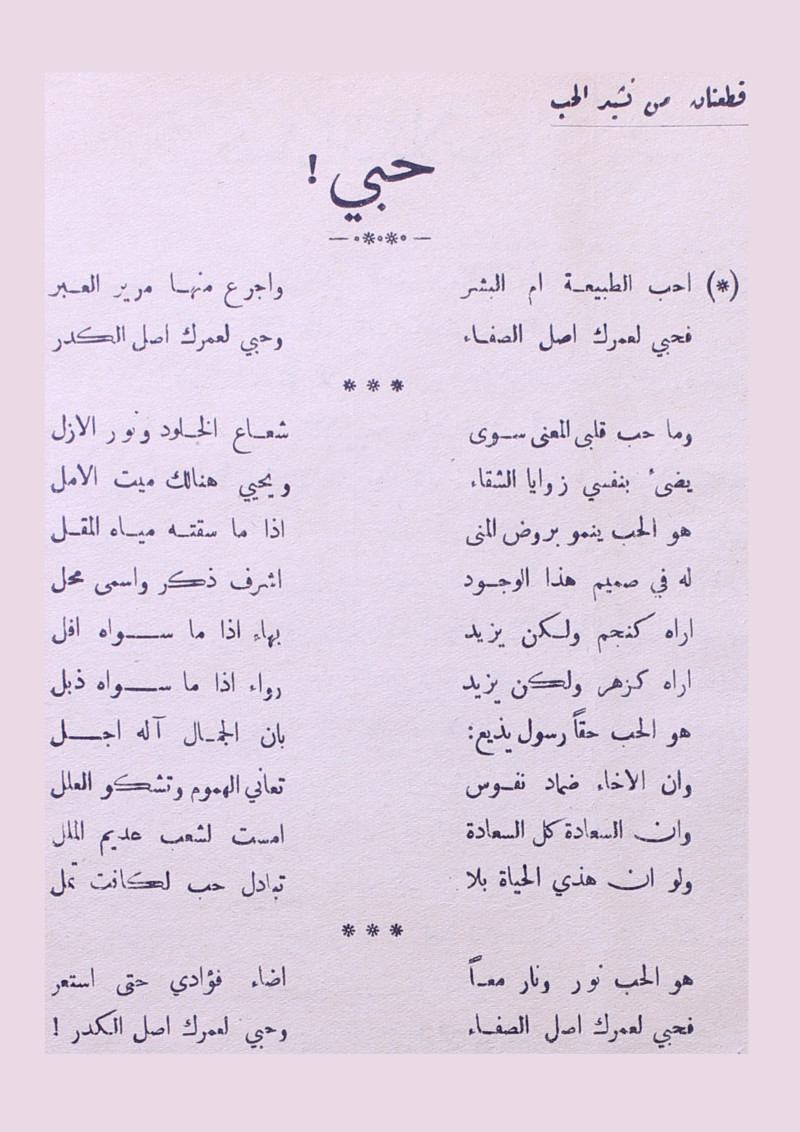 قطعتان من نشيد الحب
حبي !
(*) احب الطبيعة ام البشر واجرع منها مرير العبر
فحبي لعمرك اصل الصفاء وحبي لعمرك اصل الكدر
* * *
وما حب قلبي المعنى سوى شعاع الخلود ونور الازل
يضىء بنفسي زوايا الشقاء ويحيي هنالك ميت الامل
هو الحب ينمو بروض المنى اذا ما سقته مياه المقل
له في صميم هذا الوجود اشرف ذكر واسمى محل
اراه كنجم ولكن يزيد بهاء اذا ما سواه افل
اراه كزهر ولكن يزيد رواء اذا ما سواه ذبل
هو الحب حقاً رسول يذيع: بان الجمال آله اجل
وان الاخاء ضماد نفوس تعاني الهموم وتشكو العلل
وان السعادة كل السعادة امست لشعب عديم الملل
ولو ان هذي الحياة بلا تبادل حب لكانت تمل
* * *
هو الحب نور ونار معاً اضاء فؤادي حتى استعر
فحبي لعمرك اصل الصفاء وحبي لعمرك اصل الكدر !